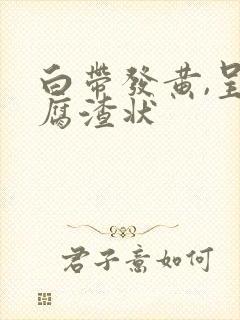 白帶發黄,呈
腐渣状
君子意如何